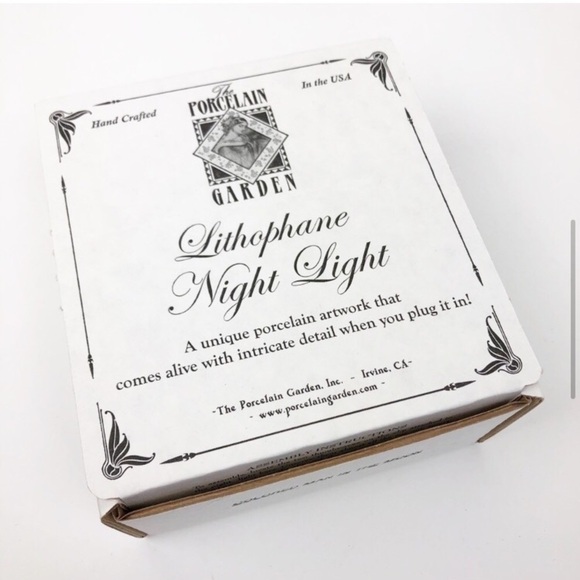 Hand Crafted
The
PORCELAIN
GARDEN
In the USA
Lithophane
Night Light
A unique porcelain artwork that
comes alive with intricate detail when you plug it in!
-The Porcelain Garden, Inc. - Irvine, CA-
- www.porcelaingarden.com -
ASSEMBLY INSTRUCTIONS
MAN IN THE MOON